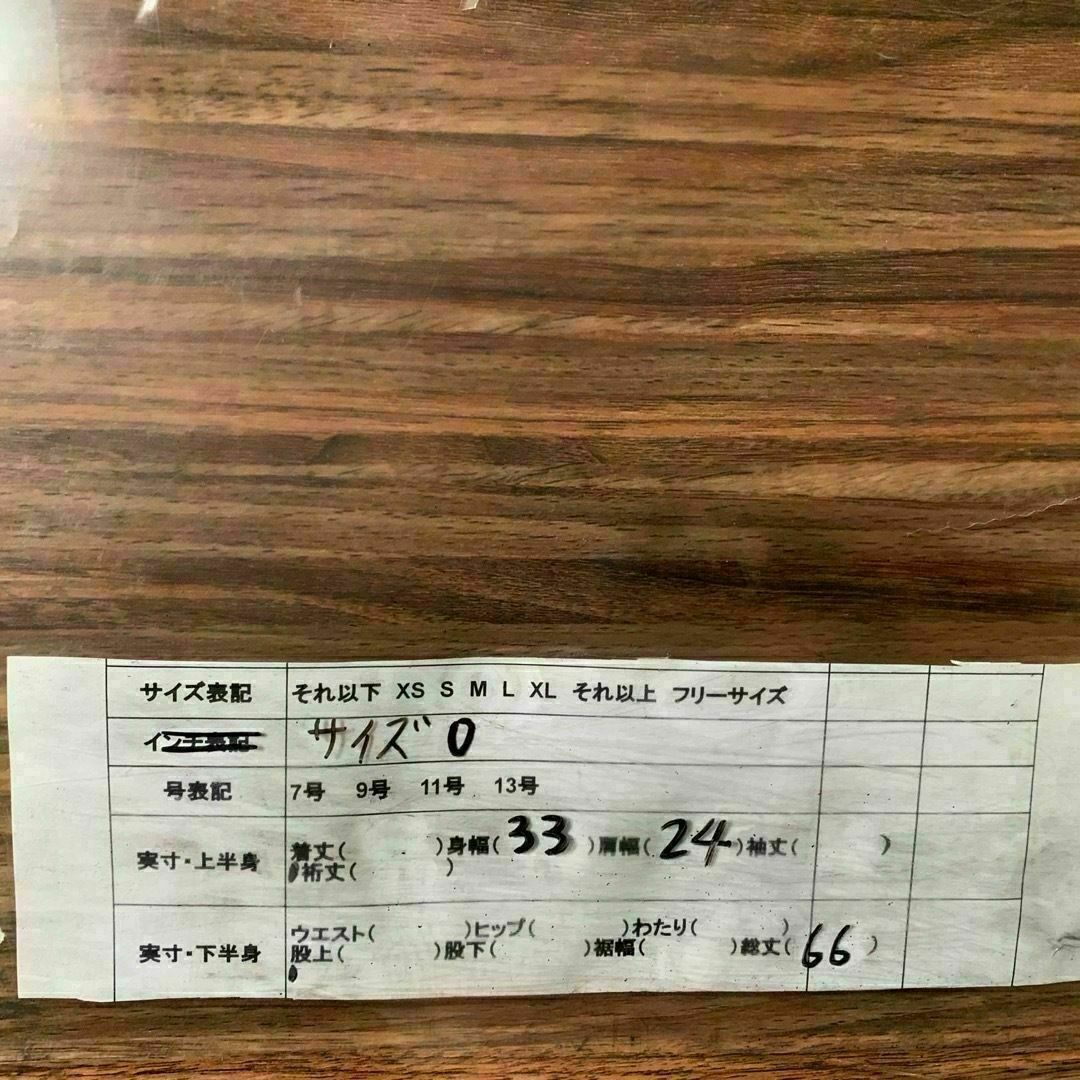 サイズ表記 それ以下 XS S M L XL それ以上 フリーサイズ
インチ表記 サイズ 0
号表記 7号 9号 11号 13号
実寸・上半身 着丈( )身幅( 33 )肩幅( 24 )袖丈( )
裄丈( )
実寸・下半身 ウエスト( )ヒップ( )わたり( )
股上( )股下( )裾幅( )総丈( 66 )